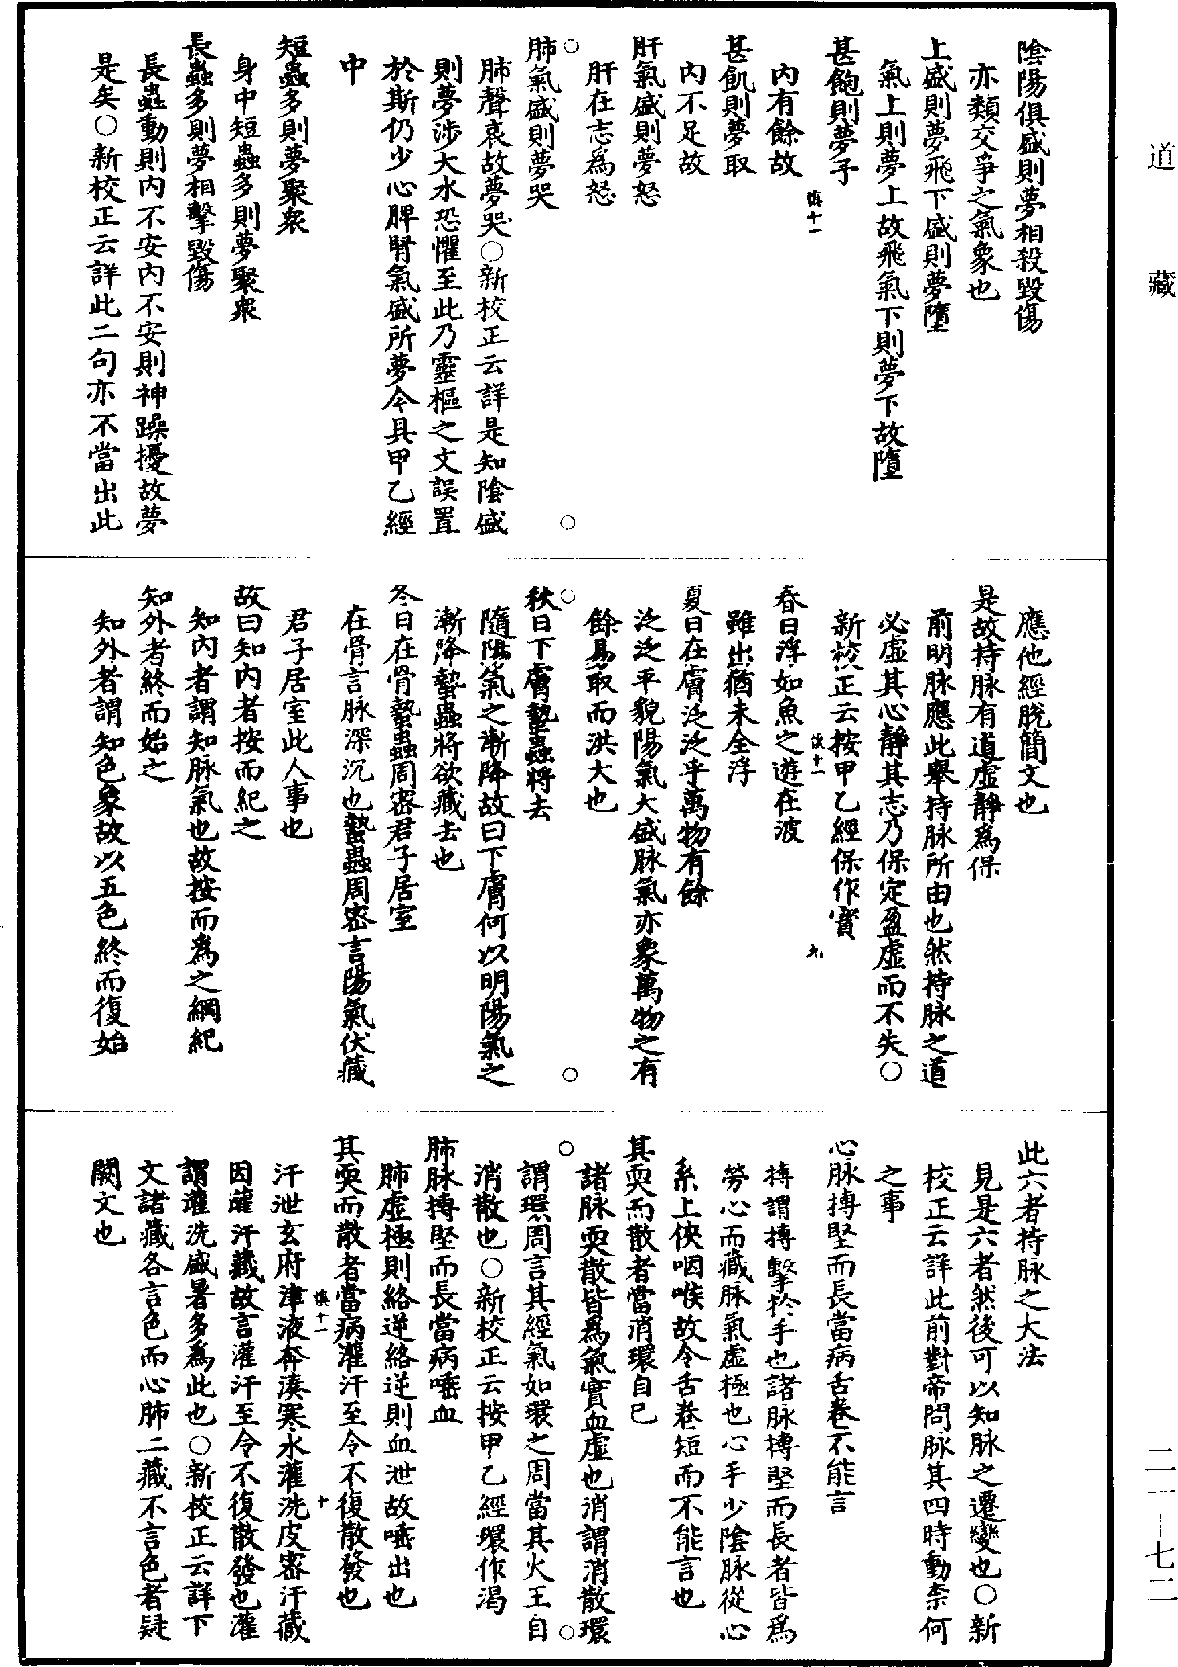 道藏
陰陽俱盛則夢相殺毀傷
亦類交爭之氣象也
上盛則夢飛下盛則夢墮
氣上則夢上故飛氣下則夢下故墮
甚飽則夢予
慎十一
內有餘故
甚飢則夢取
內不足故
肝氣盛則夢怒
肝在志為怒
肺氣盛則夢哭
肺聲哀故夢哭○新校正云詳是知陰盛
則夢涉大水恐懼至此乃靈樞之文誤置
於斯仍少心脾腎氣盛所夢今具甲乙經
中
短蟲多則夢聚衆
身中短蟲多則夢聚衆
長蟲多則夢相擊毀傷
長蟲動則內不安內不安則神躁擾故夢
是矣○新校正云詳此二句亦不當出此
應他經脫簡文也
是故持脉有道虛靜為保
前明脉應此舉持脉所由也然持脉之道
必虛其心靜其志乃保定盈虛而不失○
新校正云按甲乙經保作寶
慎十一
九
春日浮如魚之遊在波
雖出猶未全浮
夏日在膚泛泛乎萬物有餘
泛泛平貌陽氣大盛脉氣亦象萬物之有
餘易取而洪大也
秋日下膚蟄蟲將去
隨陽氣之漸降故曰下膚何以明陽氣之
漸降蟄蟲將欲藏去也
冬日在骨蟄蟲周密君子居室
在骨言脉深沉也蟄蟲周密言陽氣伏藏
君子居室此人事也
故曰知內者按而紀之
知內者謂知脉氣也故按而為之綱紀
知外者終而始之
知外者謂知色象故以五色終而復始
此六者持脉之大法
見是六者然後可以知脉之遷變也○新
校正云詳此前對帝問脉其四時動柰何
之事
心脉搏堅而長當病舌卷不能言
搏謂搏擊於手也諸脉搏堅而長者皆為
勞心而藏脉氣虛極也心手少陰脉從心
系上俠咽喉故令舌卷短而不能言也
其耎而散者當消環自已
諸脉耎散皆為氣實血虛也消謂消散環
謂環周言其經氣如環之周當其火王自
消散也○新校正云按甲乙經環作渴
肺脉搏堅而長當病唾血
肺虛極則絡逆絡逆則血泄故唾出也
其耎而散者當病灌汗至令不復散發也
慎十一
十
汗泄玄府津液奔湊寒水灌洗皮密汗藏
因灌汗藏故言灌汗至令不復散發也灌
謂灌洗盛暑多為此也○新校正云詳下
文諸藏各言色而心肺二藏不言色者疑
闕文也
二一—七二